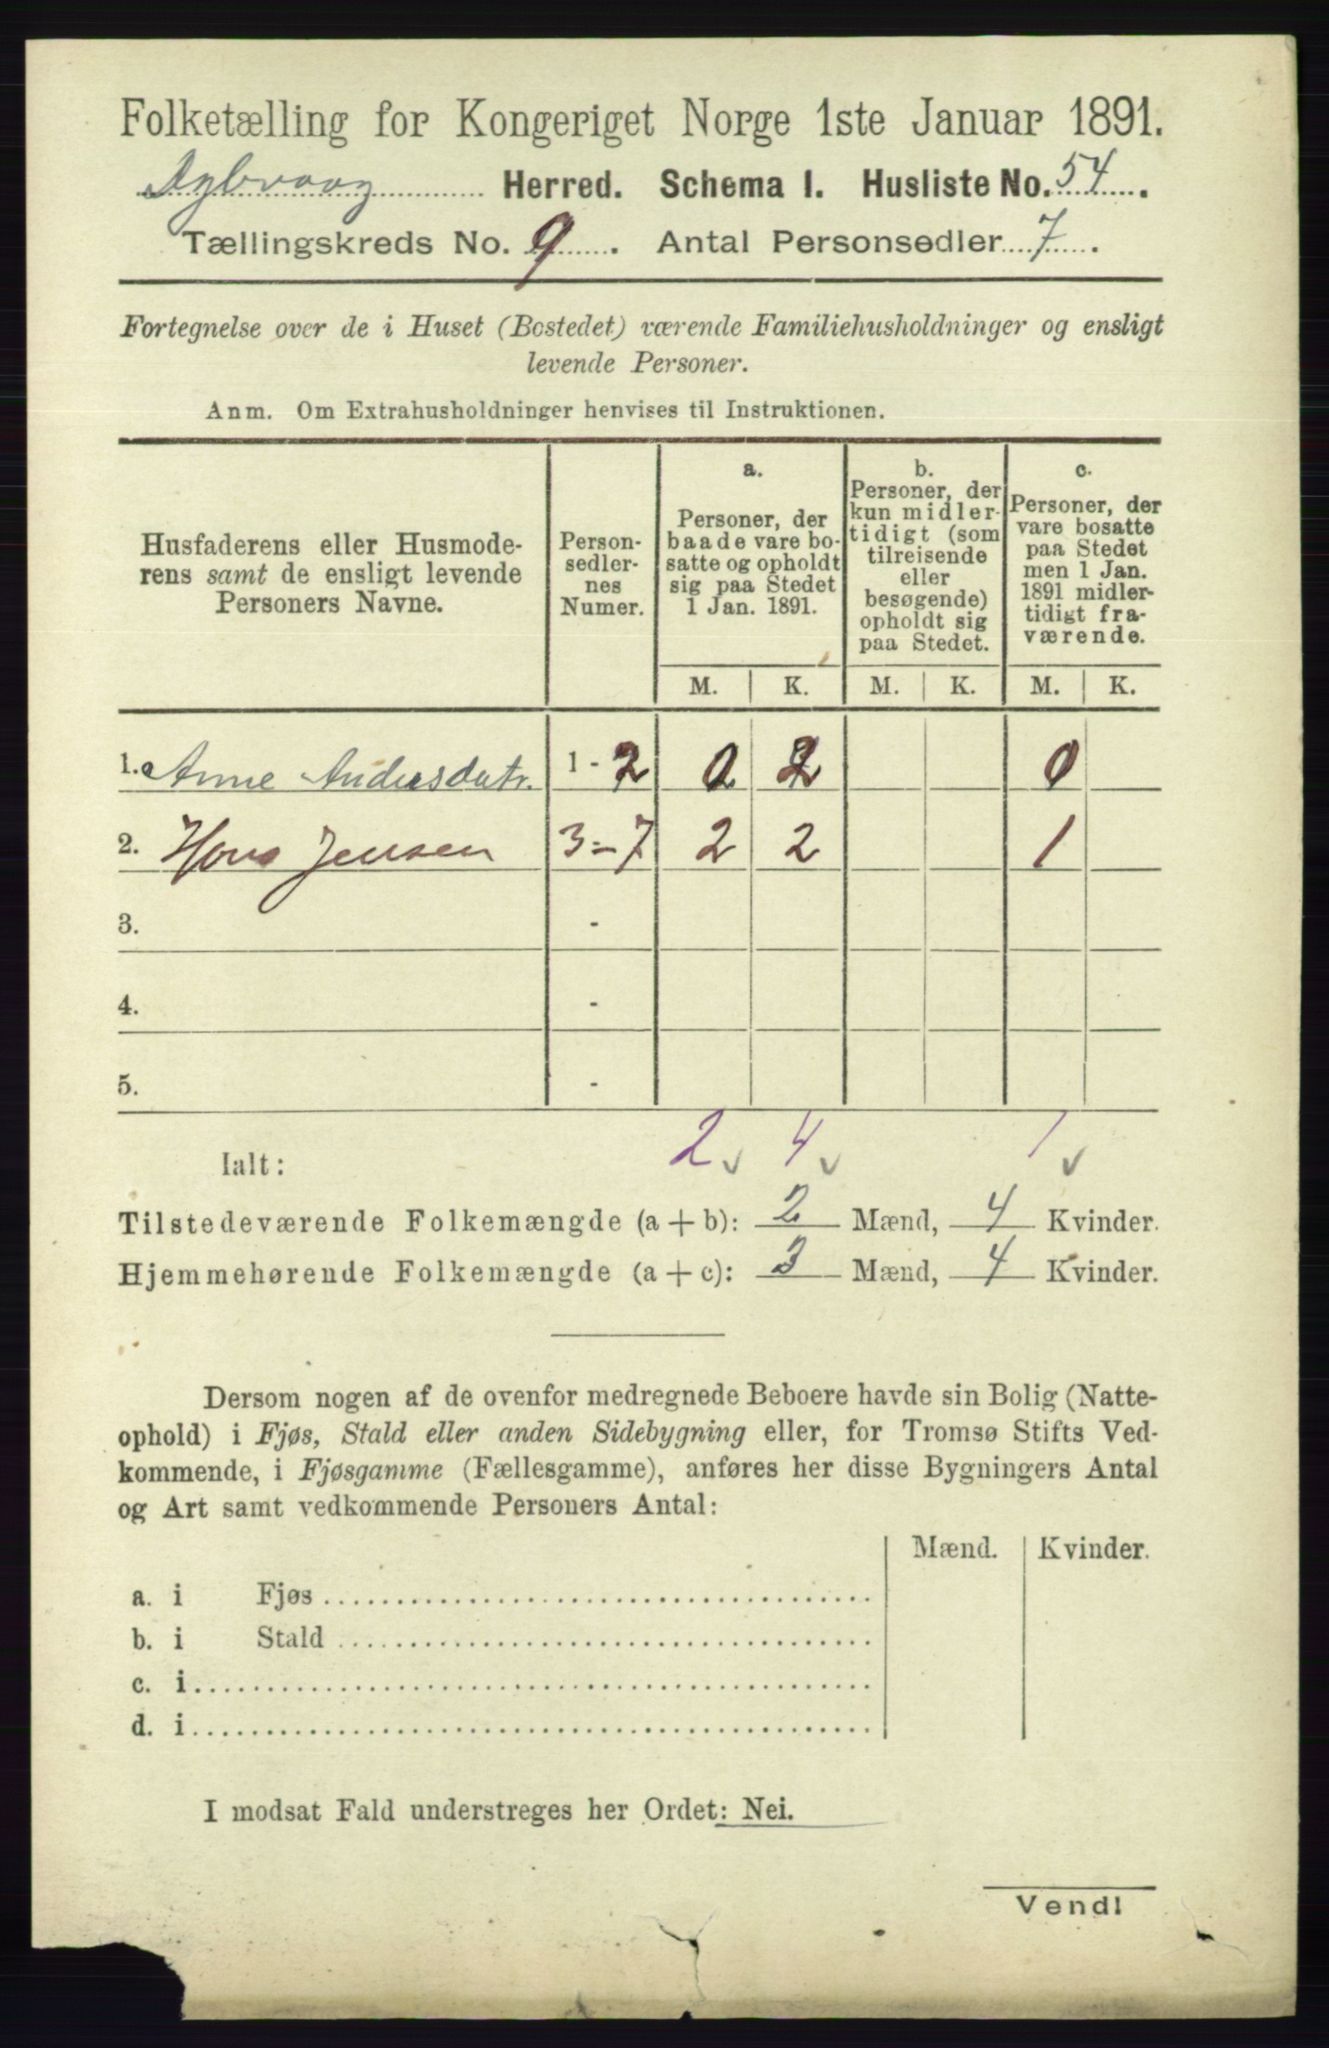 Folketælling for Kongeriget Norge 1ste Januar 1891.
Dybvaag Herred. Schema I. Husliste No. 54.
Tællingskreds No. 9. Antal Personsedler 7.
Fortegnelse over de i Huset (Bostedet) værende Familiehusholdninger og ensligt
levende Personer.
Anm. Om Extrahusholdninger henvises til Instruktionen.
Husfaderens eller Husmode-
rens samt de ensligt levende
Personers Navne.
Person-
sedler-
nes
Numer.
a.
Personer, der
baade vare bo-
satte og opholdt
sig paa Stedet
1 Jan. 1891.
b.
Personer, der
kun midler-
tidigt (som
tilreisende
eller
besøgende)
opholdt sig
paa Stedet.
c.
Personer, der
vare bosatte
paa Stedet
men 1 Jan.
1891 midler-
tidigt fra-
værende.
M. K. M. K. M. K.
1. Anne Andersdatr. 1 - 2 0 2 0
2. Hans Jensen 3 - 7 2 2 1
3. -
4. -
5. -
Ialt: 2 4 1
Tilstedeværende Folkemængde (a + b): 2 Mænd, 4 Kvinder.
Hjemmehørende Folkemængde (a + c): 3 Mænd, 4 Kvinder.
Dersom nogen af de ovenfor medregnede Beboere havde sin Bolig (Natte-
ophold) i Fjøs, Stald eller anden Sidebygning eller, for Tromsø Stifts Ved-
kommende, i Fjøsgamme (Fællesgamme), anføres her disse Bygningers Antal
og Art samt vedkommende Personers Antal:
Mænd. Kvinder.
a. i Fjøs
b. i Stald
c. i
d. i
I modsat Fald understreges her Ordet: Nei.
Vend!